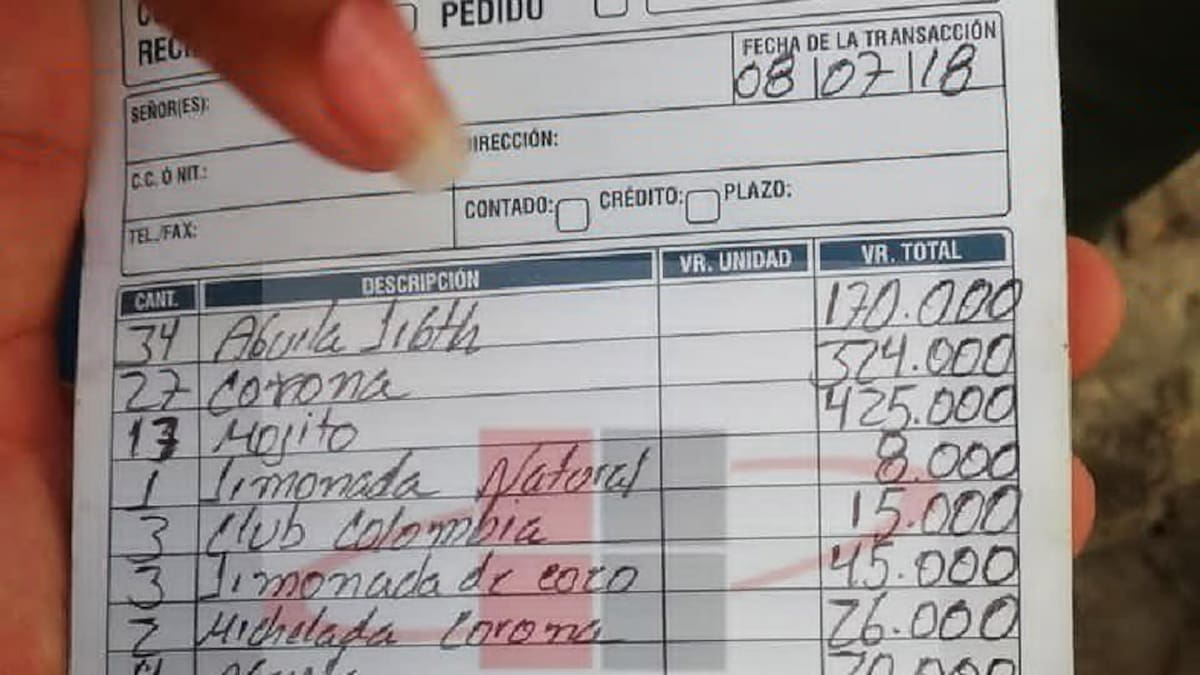 PEDIDO
FECHA DE LA TRANSACCIÓN
08|07|18
SEÑOR(ES):
DIRECCIÓN:
C.C. Ó NIT.:
CONTADO: CRÉDITO: PLAZO:
TEL./FAX:
CANT. DESCRIPCIÓN VR. UNIDAD VR. TOTAL
34 Aguila 170.000
27 Corona 324.000
17 Mojito 425.000
1 limonada Natural 8.000
3 Club Colombia 15.000
3 limonada de coco 45.000
2 Michelada Corona 26.000